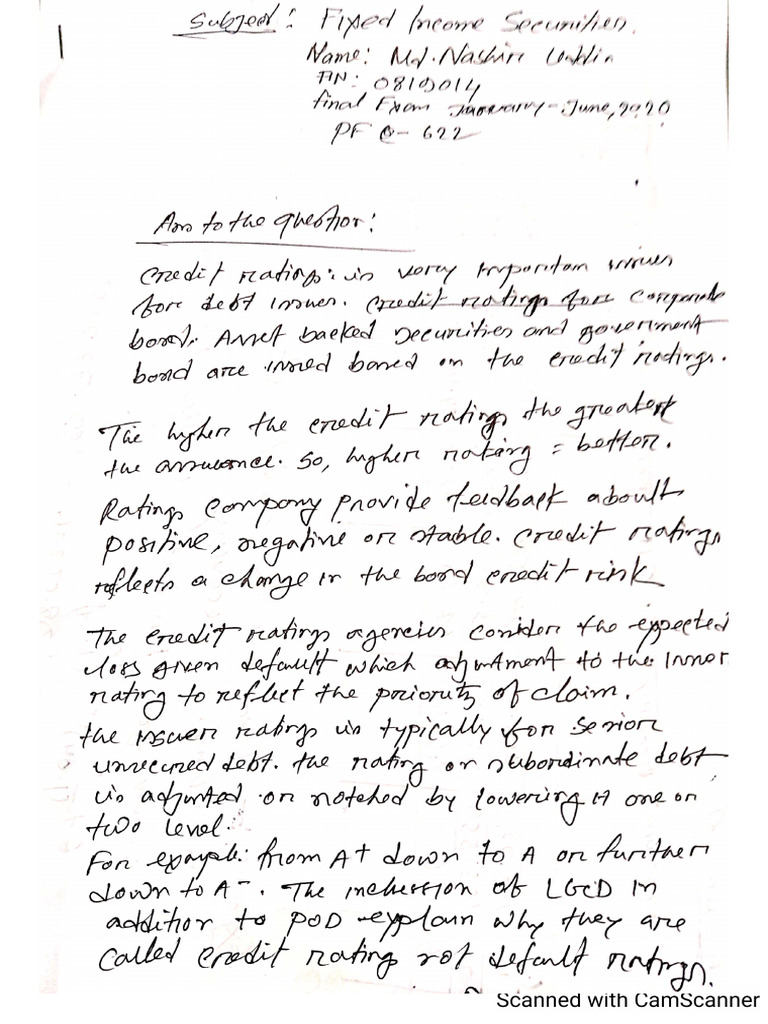 Subject: Fixed Income Securities.
Name: Md. Nashir Uddin
final Exam January-June, 2020
PF 0- 622
Ans to the question:
Credit ratings is very important issues
for debt issuer. Credit ratings for corporate
bond. Asset backed securities and government
bond are issued based on the credit ratings.
The higher the credit ratings the greatest
the assurance. So, higher rating = better.
Ratings company provide feedback aboult
positive, negative or stable. Credit ratings
reflects a change in the bond credit risk
The credit ratings agencies consider the expected
loss given default which adjustment to the issuer
rating to reflect the priority of claim.
the issuer ratings is typically for senior
unsecured debt. the rating on subordinate debt
is adjusted or notched by lowering it one or
two level.
For example: from A+ down to A or further
down to A-. The inclussion of LGD in
addition to POD explain why they are
called credit rating not default ratings.
Scanned with CamScanner